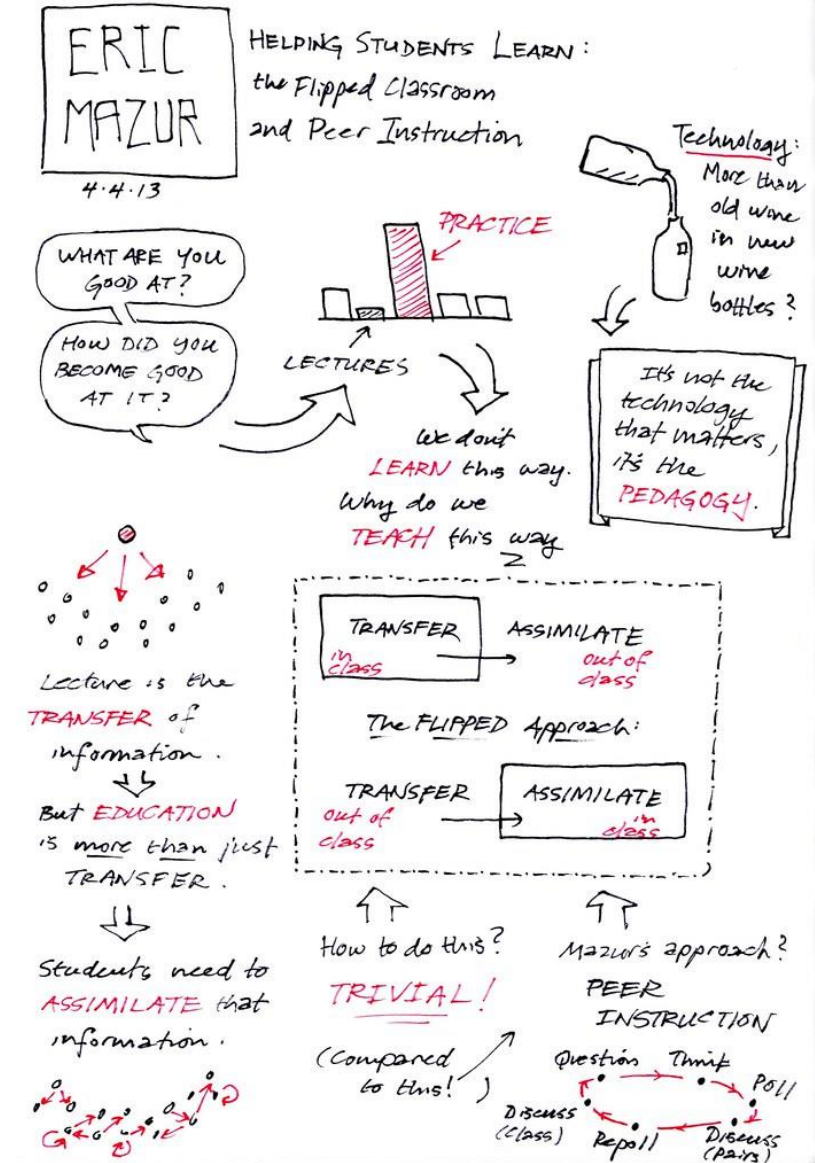 ERIC
MAZUR
4.4.13
HELPING STUDENTS LEARN:
the Flipped Classroom
and Peer Instruction
Technology:
More than
old wine
in new
wine
bottles?
It's not the
technology
that matters,
it's the
PEDAGOGY.
WHAT ARE YOU
GOOD AT?
HOW DID YOU
BECOME GOOD
AT IT?
PRACTICE
LECTURES
We don't
LEARN this way.
Why do we
TEACH this way
?
Lecture is the
TRANSFER of
information.
But EDUCATION
is more than just
TRANSFER.
Students need to
ASSIMILATE that
information.
TRANSFER
in
class
ASSIMILATE
out of
class
The FLIPPED Approach:
TRANSFER
out of
class
ASSIMILATE
in
class
How to do this?
TRIVIAL!
(Compared
to this!)
Mazur's approach?
PEER
INSTRUCTION
Question
Think
Poll
Discuss
(Pairs)
Repoll
Discuss
(Class)